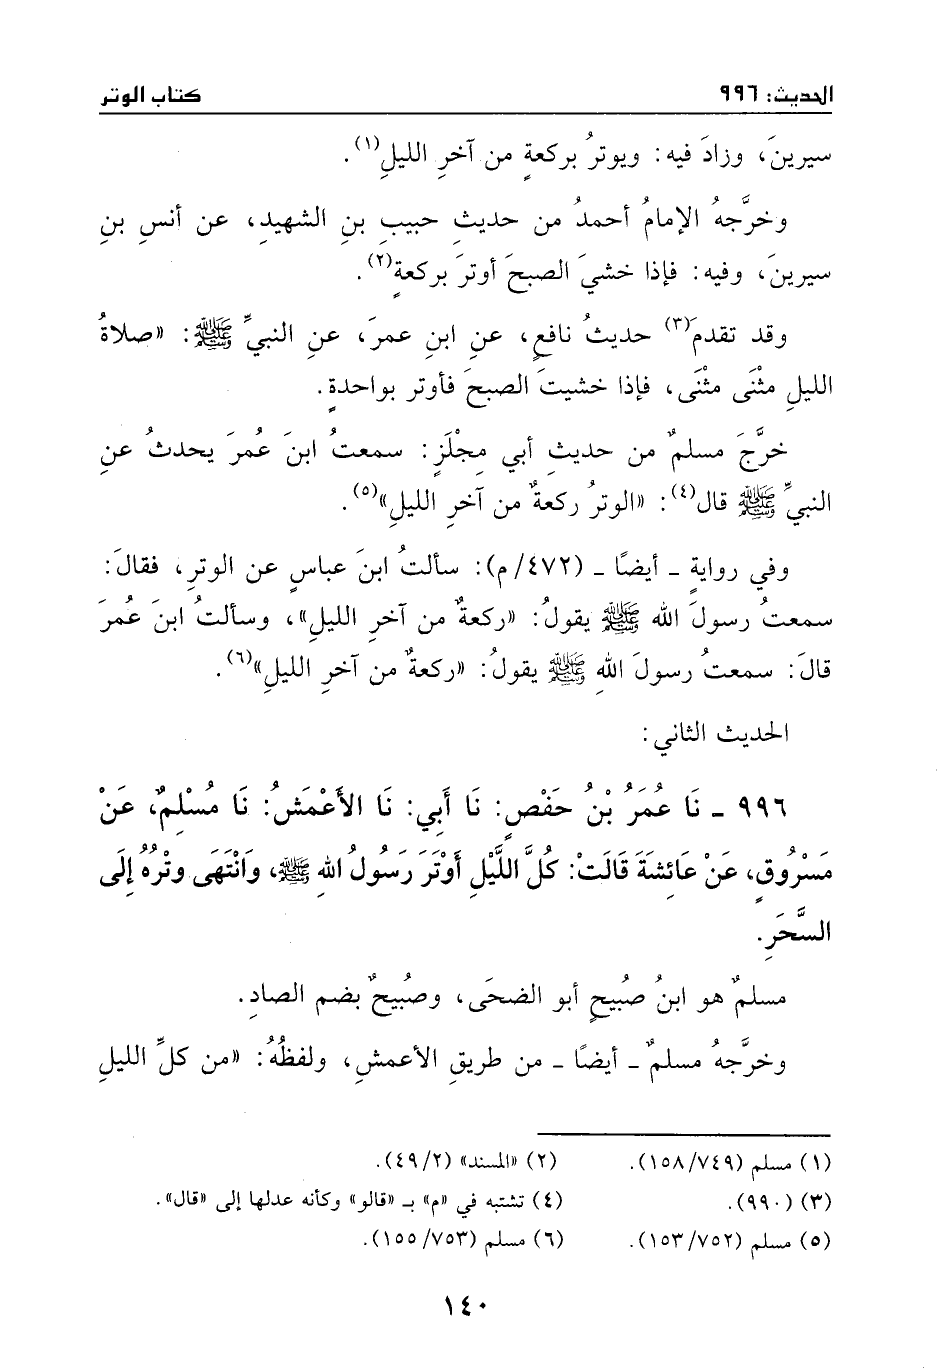 الحديث: ٩٩٦ كتاب الوتر
سيرينَ، وزادَ فيه: ويوترُ بركعةٍ من آخرِ الليلِ(١).
وخرَّجهُ الإمامُ أحمدُ من حديثِ حبيبِ بنِ الشهيدِ، عن أنسِ بنِ
سيرينَ، وفيه: فإذا خشيَ الصبحَ أوترَ بركعةٍ(٢).
وقد تقدمَ(٣) حديثُ نافعٍ، عنِ ابنِ عمرَ، عنِ النبيِّ ﷺ: «صلاةُ
الليلِ مثْنَى مثْنَى، فإذا خشيتَ الصبحَ فأوتر بواحدةٍ.
خرَّجَ مسلمٌ من حديثِ أبي مِجْلَزٍ: سمعتُ ابنَ عُمرَ يحدثُ عنِ
النبيِّ ﷺ قال(٤): «الوترُ ركعةٌ من آخرِ الليلِ»(٥).
وفي روايةٍ ـ أيضًا ـ (٤٧٢/م): سألتُ ابنَ عباسٍ عن الوترِ، فقالَ:
سمعتُ رسولَ الله ﷺ يقولُ: «ركعةٌ من آخرِ الليلِ»، وسألتُ ابنَ عُمرَ
قالَ: سمعتُ رسولَ اللهِ ﷺ يقولُ: «ركعةٌ من آخرِ الليلِ»(٦).
الحديث الثاني:
٩٩٦ ـ نَا عُمَرُ بْنُ حَفْصٍ: نَا أَبِي: نَا الأَعْمَشُ: نَا مُسْلِمٌ، عَنْ
مَسْرُوقٍ، عَنْ عَائِشَةَ قَالَتْ: كُلَّ اللَّيْلِ أَوْتَرَ رَسُولُ اللهِ ﷺ، وَانْتَهَى وِتْرُهُ إِلَى
السَّحَرِ.
مسلمٌ هو ابنُ صُبيحٍ أبو الضحَى، وصُبيحٌ بضم الصادِ.
وخرَّجهُ مسلمٌ ـ أيضًا ـ من طريقِ الأعمشِ، ولفظُهُ: «من كلِّ الليلِ
(١) مسلم (١٥٨/٧٤٩). (٢) «المسند» (٤٩/٢).
(٣) (٩٩٠). (٤) تشتبه في «م» بـ «قالو» وكأنه عدلها إلى «قال».
(٥) مسلم (١٥٣/٧٥٢). (٦) مسلم (١٥٥/٧٥٣).
١٤٠